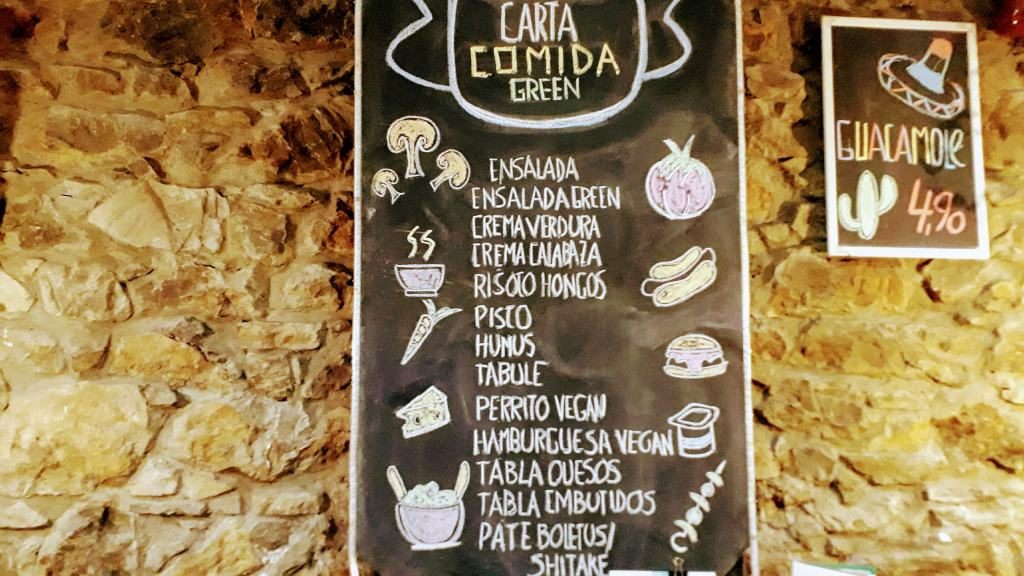 CARTA
COMIDA
GREEN
ENSALADA
ENSALADA GREEN
CREMA VERDURA
CREMA CALABAZA
RISOTO HONGOS
PISTO
HUMUS
TABULE
PERRITO VEGAN
HAMBURGUESA VEGAN
TABLA QUESOS
TABLA EMBUTIDOS
PATE BOLETUS/
SHITAKE
GUACAMOLE
4,90